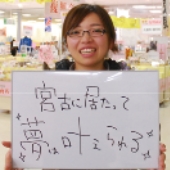 宮古に居たって
夢は叶えられる